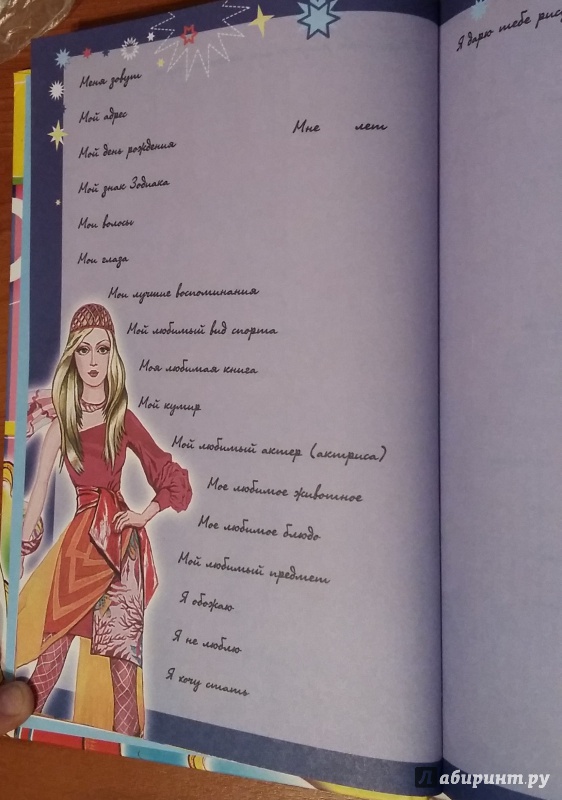 Меня зовут
Мой адрес
Мне лет
Мой день рождения
Мой знак Зодиака
Мои волосы
Мои глаза
Мои лучшие воспоминания
Мой любимый вид спорта
Моя любимая книга
Мой кумир
Мой любимый актер (актриса)
Мое любимое животное
Мое любимое блюдо
Мой любимый предмет
Я обожаю
Я не люблю
Я хочу стать
Я дарю тебе
Лабиринт.ру